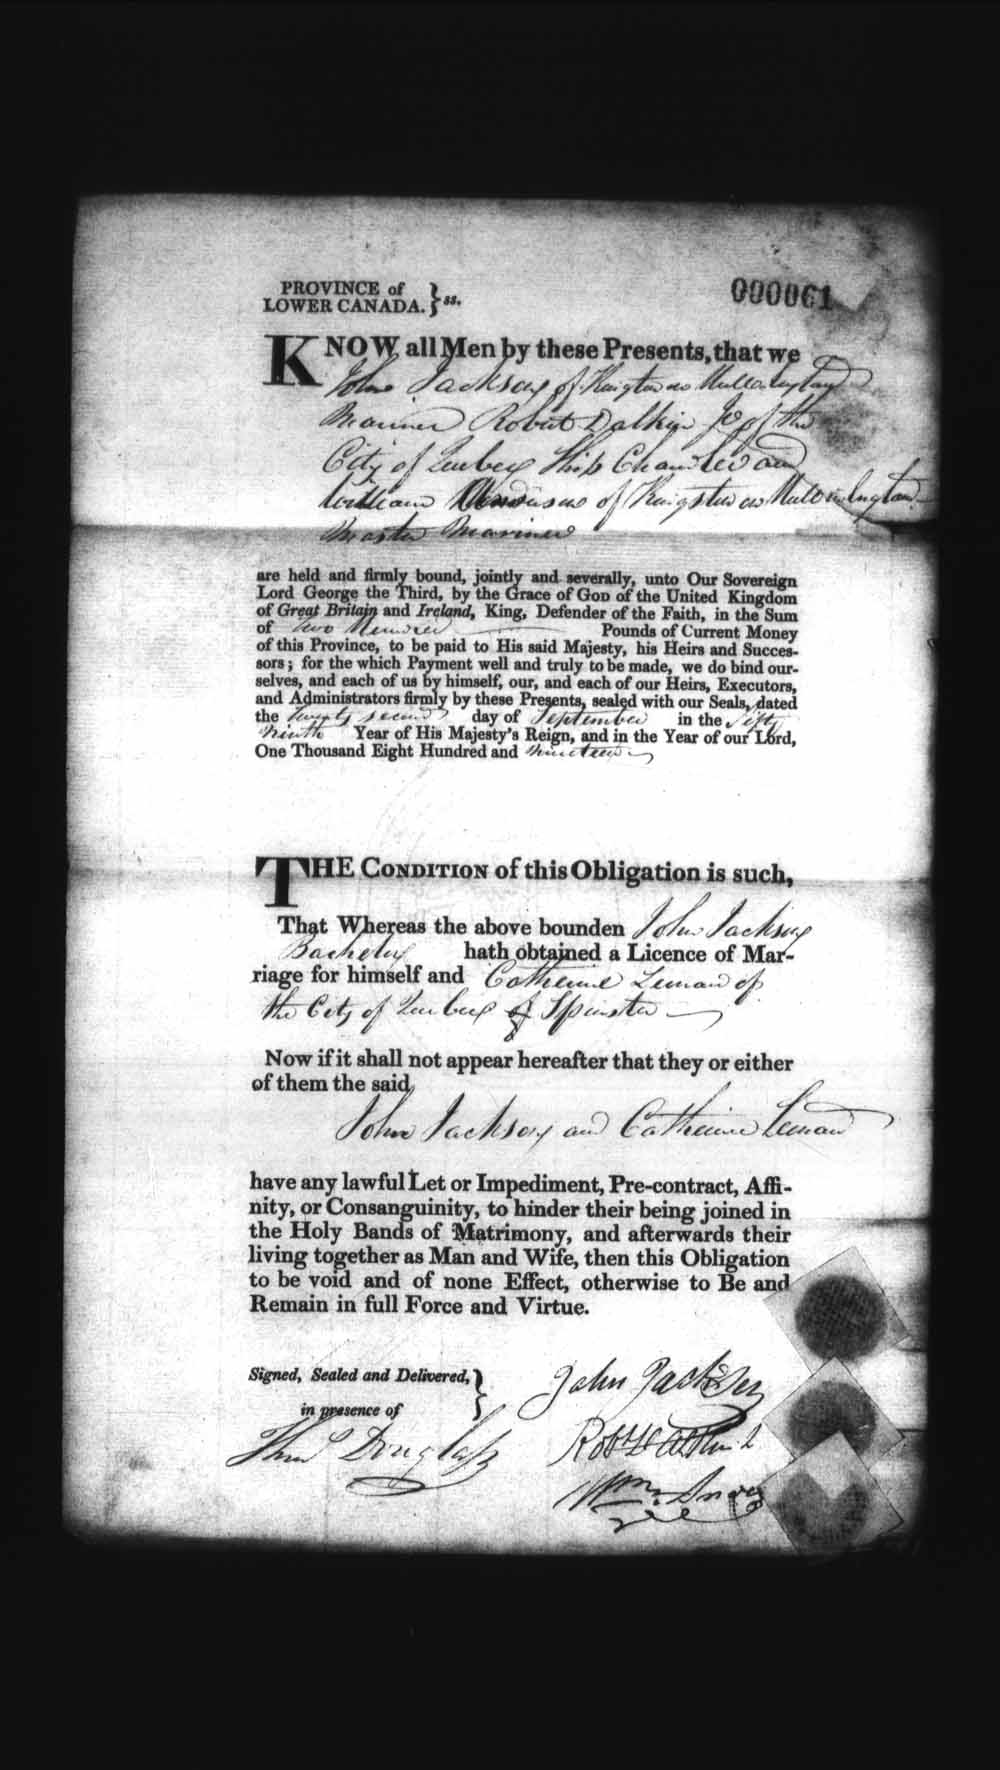 PROVINCE of
LOWER CANADA. } ss.
000061
KNOW all Men by these Presents, that we
John Jackson of Kingston Hull England
Mariner Robert Dalkin Jr of the
City of Quebec Ship Chandler and
William of Kingston on Hull in England
Master Mariner
are held and firmly bound, jointly and severally, unto Our Sovereign
Lord George the Third, by the Grace of GOD of the United Kingdom
of Great Britain and Ireland, King, Defender of the Faith, in the Sum
of two Hundred Pounds of Current Money
of this Province, to be paid to His said Majesty, his Heirs and Succes-
sors; for the which Payment well and truly to be made, we do bind our-
selves, and each of us by himself, our, and each of our Heirs, Executors,
and Administrators firmly by these Presents, sealed with our Seals, dated
the twenty second day of September in the Fifty
Ninth Year of His Majesty's Reign, and in the Year of our Lord,
One Thousand Eight Hundred and nineteen
THE CONDITION of this Obligation is such,
That Whereas the above bounden John Jackson
Bachelor hath obtained a Licence of Mar-
riage for himself and Catherine Leman of
the City of Quebec Spinster
Now if it shall not appear hereafter that they or either
of them the said
John Jackson and Catherine Leman
have any lawful Let or Impediment, Pre-contract, Affi-
nity, or Consanguinity, to hinder their being joined in
the Holy Bands of Matrimony, and afterwards their
living together as Man and Wife, then this Obligation
to be void and of none Effect, otherwise to Be and
Remain in full Force and Virtue.
Signed, Sealed and Delivered, }
in presence of
Thos Douglass
John Jackson
Robt Dalkin
Wm.